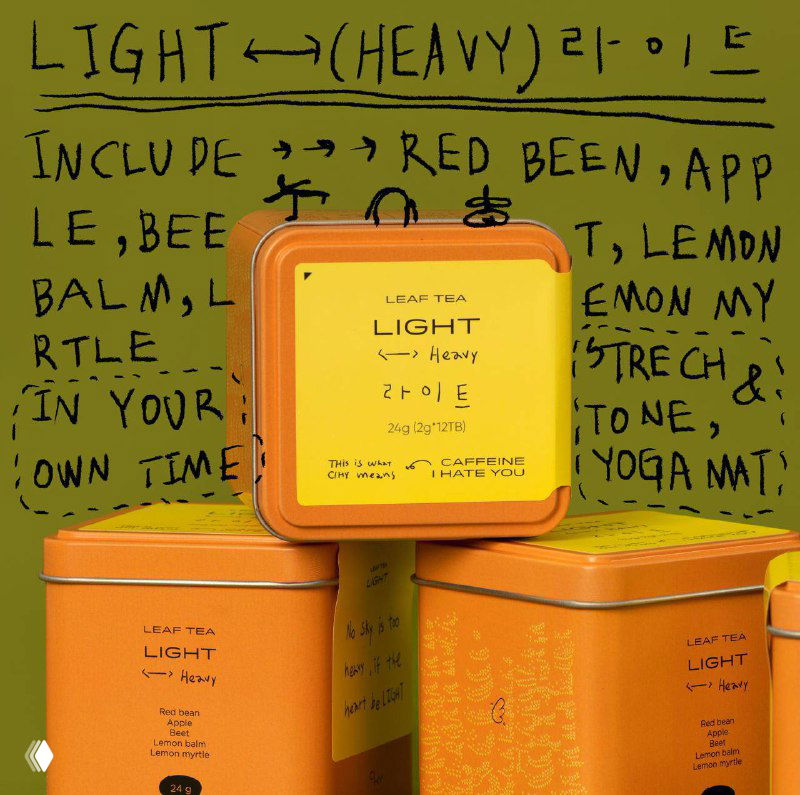 LIGHT ⟷ (HEAVY) 라이트
INCLUDE → → → RED BEEN, APP
LE, BEE T, LEMON
BALM, L EMON MY
RTLE
IN YOUR
OWN TIME
STRECH &
TONE,
YOGA MAT
LEAF TEA
LIGHT
⟷ Heavy
라이트
24g (2g*12TB)
THis is what
CIHY means
CAFFEINE
I HATE YOU
LEAF TEA
LIGHT
⟷ Heavy
Red bean
Apple
Beet
Lemon balm
Lemon myrtle
24 g
LEAF TEA
LIGHT
No sky is too
heavy, if the
heart be LIGHT
CIHY
LEAF TEA
LIGHT
⟷ Heavy
Red bean
Apple
Beet
Lemon balm
Lemon myrtle